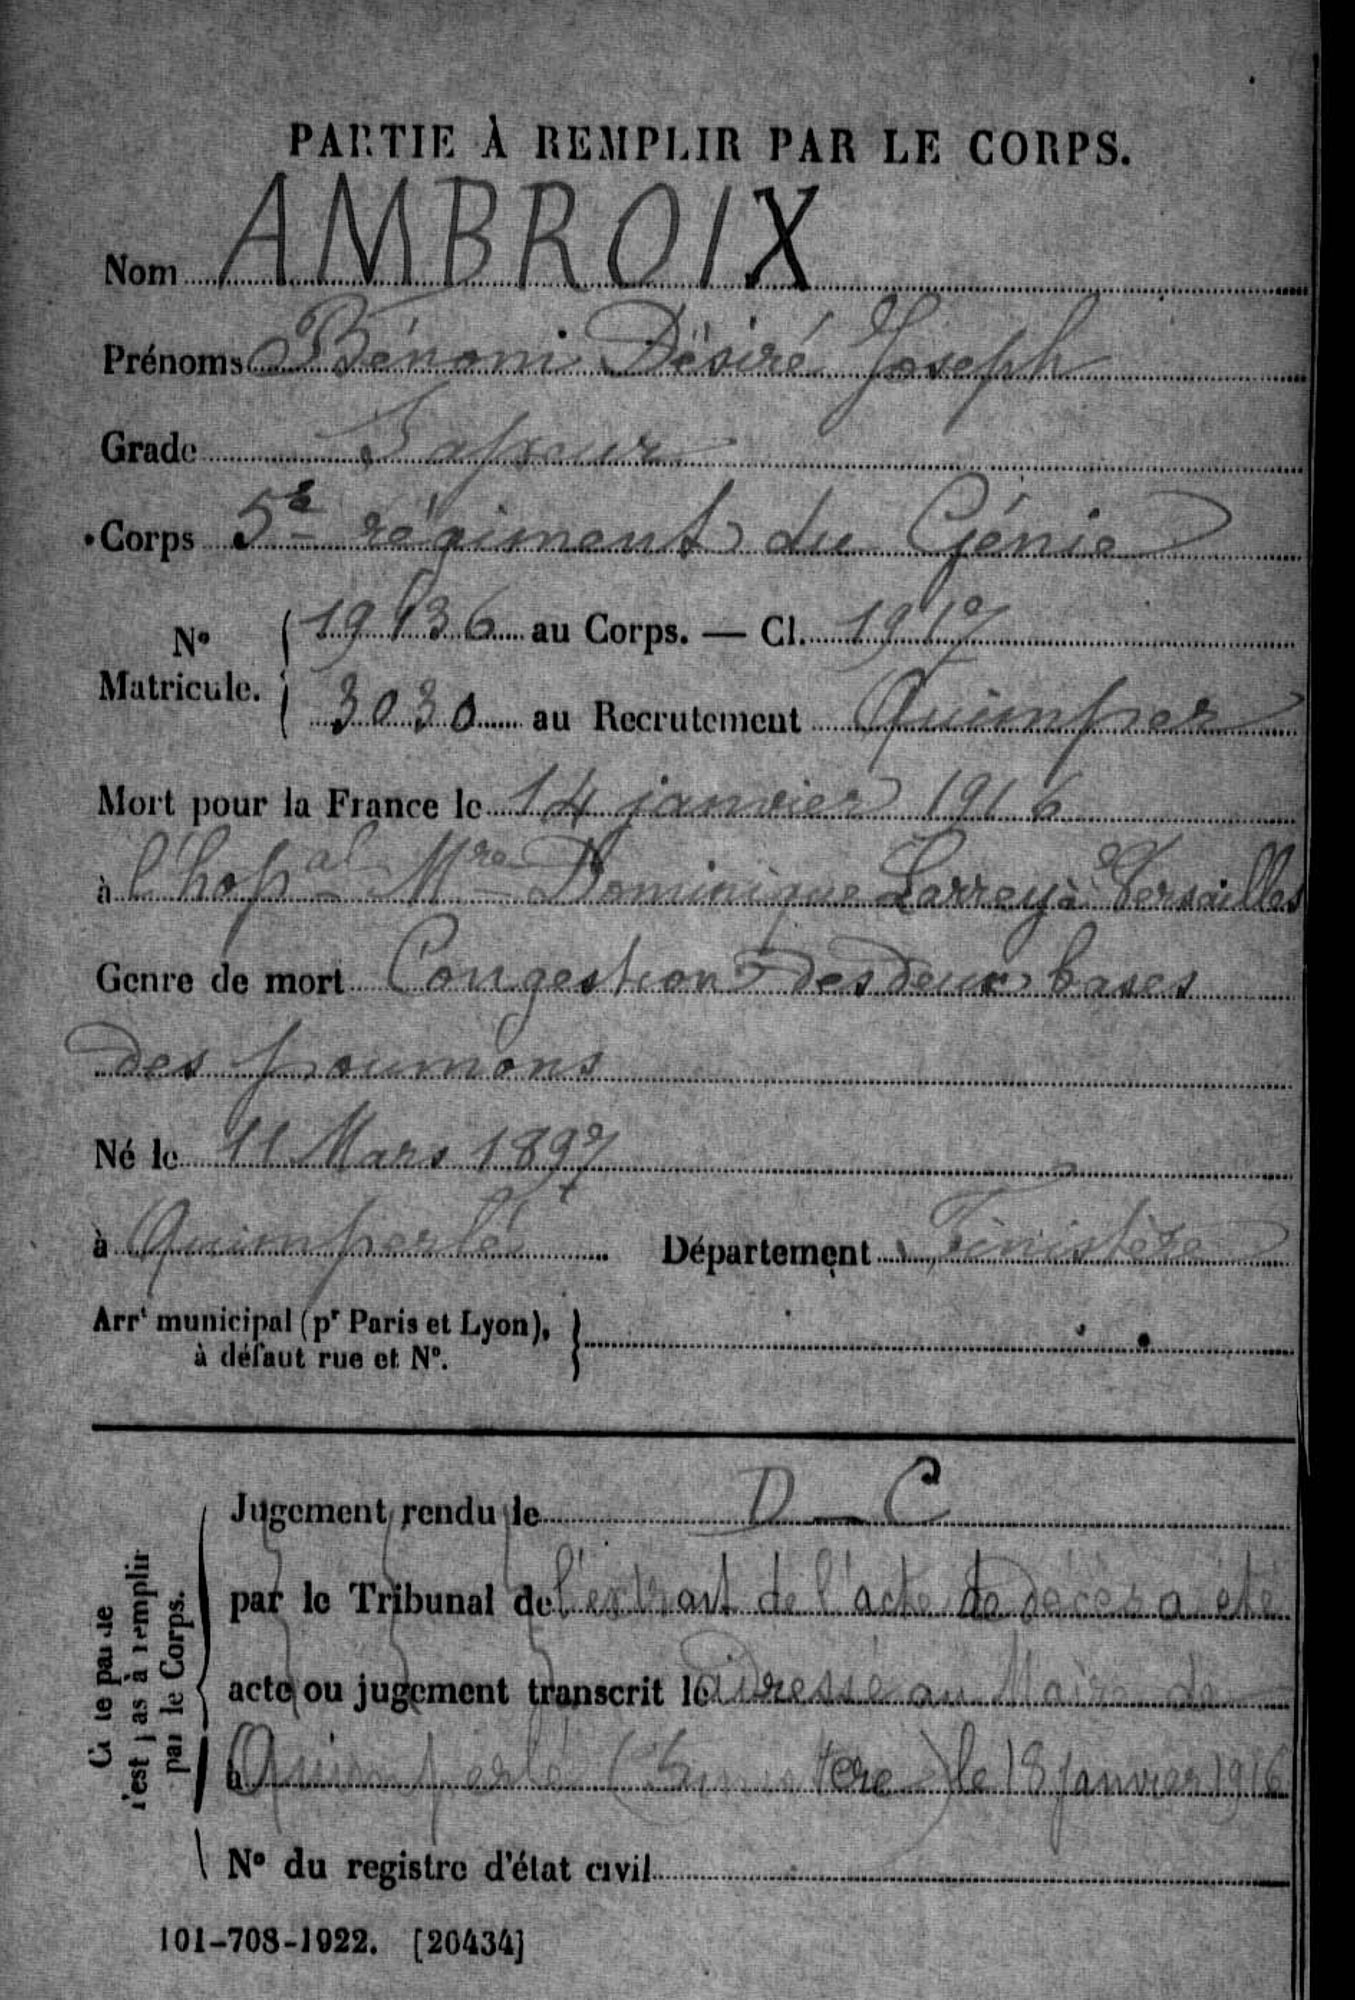 PARTIE À REMPLIR PAR LE CORPS.
Nom AMBROIX
Prénoms Bénoni Désiré Joseph
Grade Sapeur
Corps 5e régiment du Génie
No Matricule. { 19136 au Corps. — Cl. 1917
3030 au Recrutement Quimper
Mort pour la France le 14 janvier 1916
à l'hopal Mre Dominique Larrey à Versailles
Genre de mort Congestion des deux bases
des poumons
Né le 11 Mars 1897
à Quimperlé Département Finistère
Arrt municipal (pr Paris et Lyon), à défaut rue et No. }
Cette partie n'est pas à remplir par le Corps.
Jugement rendu le D — C
par le Tribunal de l'extrait de l'acte de décès a été
acte ou jugement transcrit le adressé au Maire de
à Quimperlé (Finistère) le 18 janvier 1916
No du registre d'état civil
101-708-1922. [20434]